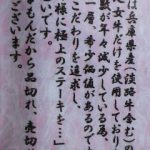 は兵庫県産(淡路牛含む)の
女牛だけを使用しており
数が年々減少している為、
一層希少価値があるので
こだわりを追求し、
様に極上のステーキを…」
ございます。
もんだから品切れ、売切
ございます。